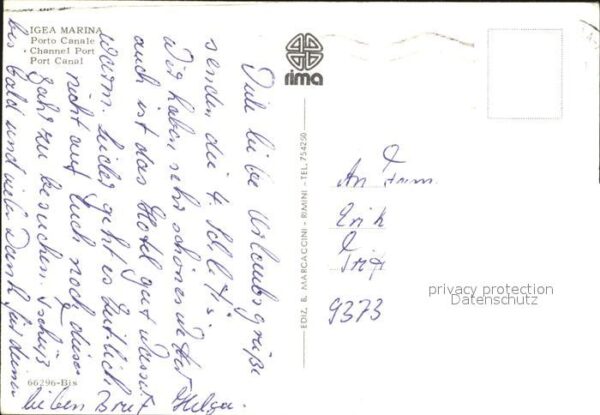 IGEA MARINA
Porto Canale
Channel Port
Port Canal
rima
Viele liebe Urlaubsgrüße
senden die 4
Wir haben sehr schönes Wetter
auch ist das Hotel gut Wasser
warm. Leider geht es zeitlich
nicht auf Euch noch dieses
Jahr zu besuchen. Tschüß
bis bald und vielen Dank für deinen
lieben Brief Helga.
66296-Bis
EDIZ. B. MARCACCINI - RIMINI - TEL. 754250
An Fam.
Erik
9373
privacy protection
Datenschutz